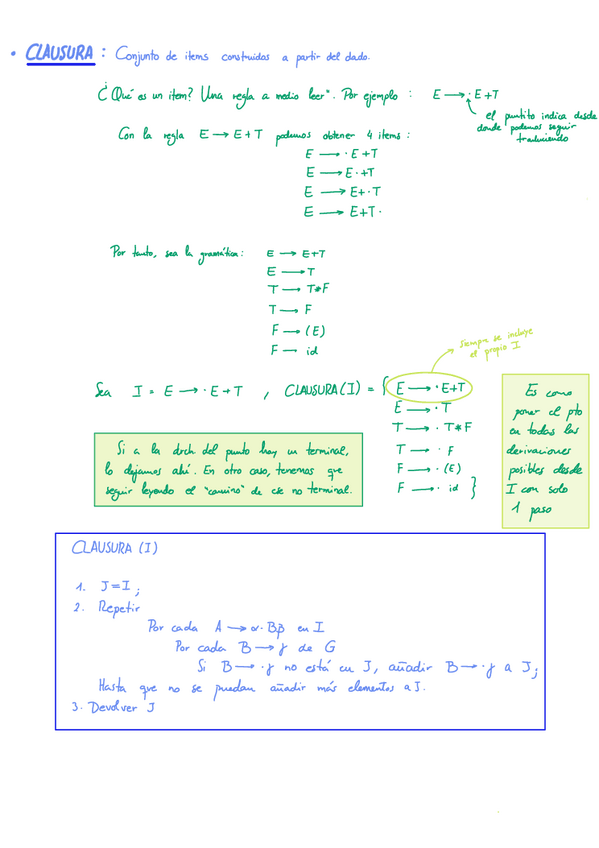 • CLAUSURA : Conjunto de items construidos a partir del dado.
¿Qué es un item? Una regla "a medio leer". Por ejemplo : E → · E+T
el puntito indica desde
donde podemos seguir
traduciendo
Con la regla E → E+T podemos obtener 4 items :
E → · E+T
E → E · +T
E → E+ · T
E → E+T ·
Por tanto, sea la gramática: E → E+T
E → T
T → T*F
T → F
F → (E)
F → id
siempre se incluye
el propio I
Sea I = E → · E+T , CLAUSURA(I) = { E → · E+T
E → · T
T → · T*F
T → · F
F → · (E)
F → · id }
Es como
poner el pto
en todas las
derivaciones
posibles desde
I con solo
1 paso
Si a la drch del punto hay un terminal,
lo dejamos ahí. En otro caso, tenemos que
seguir leyendo el "camino" de ese no terminal.
CLAUSURA (I)
1. J=I ;
2. Repetir
Por cada A → α·Bβ en I
Por cada B → γ de G
Si B → ·γ no está en J, añadir B → ·γ a J;
Hasta que no se puedan añadir más elementos a J.
3. Devolver J